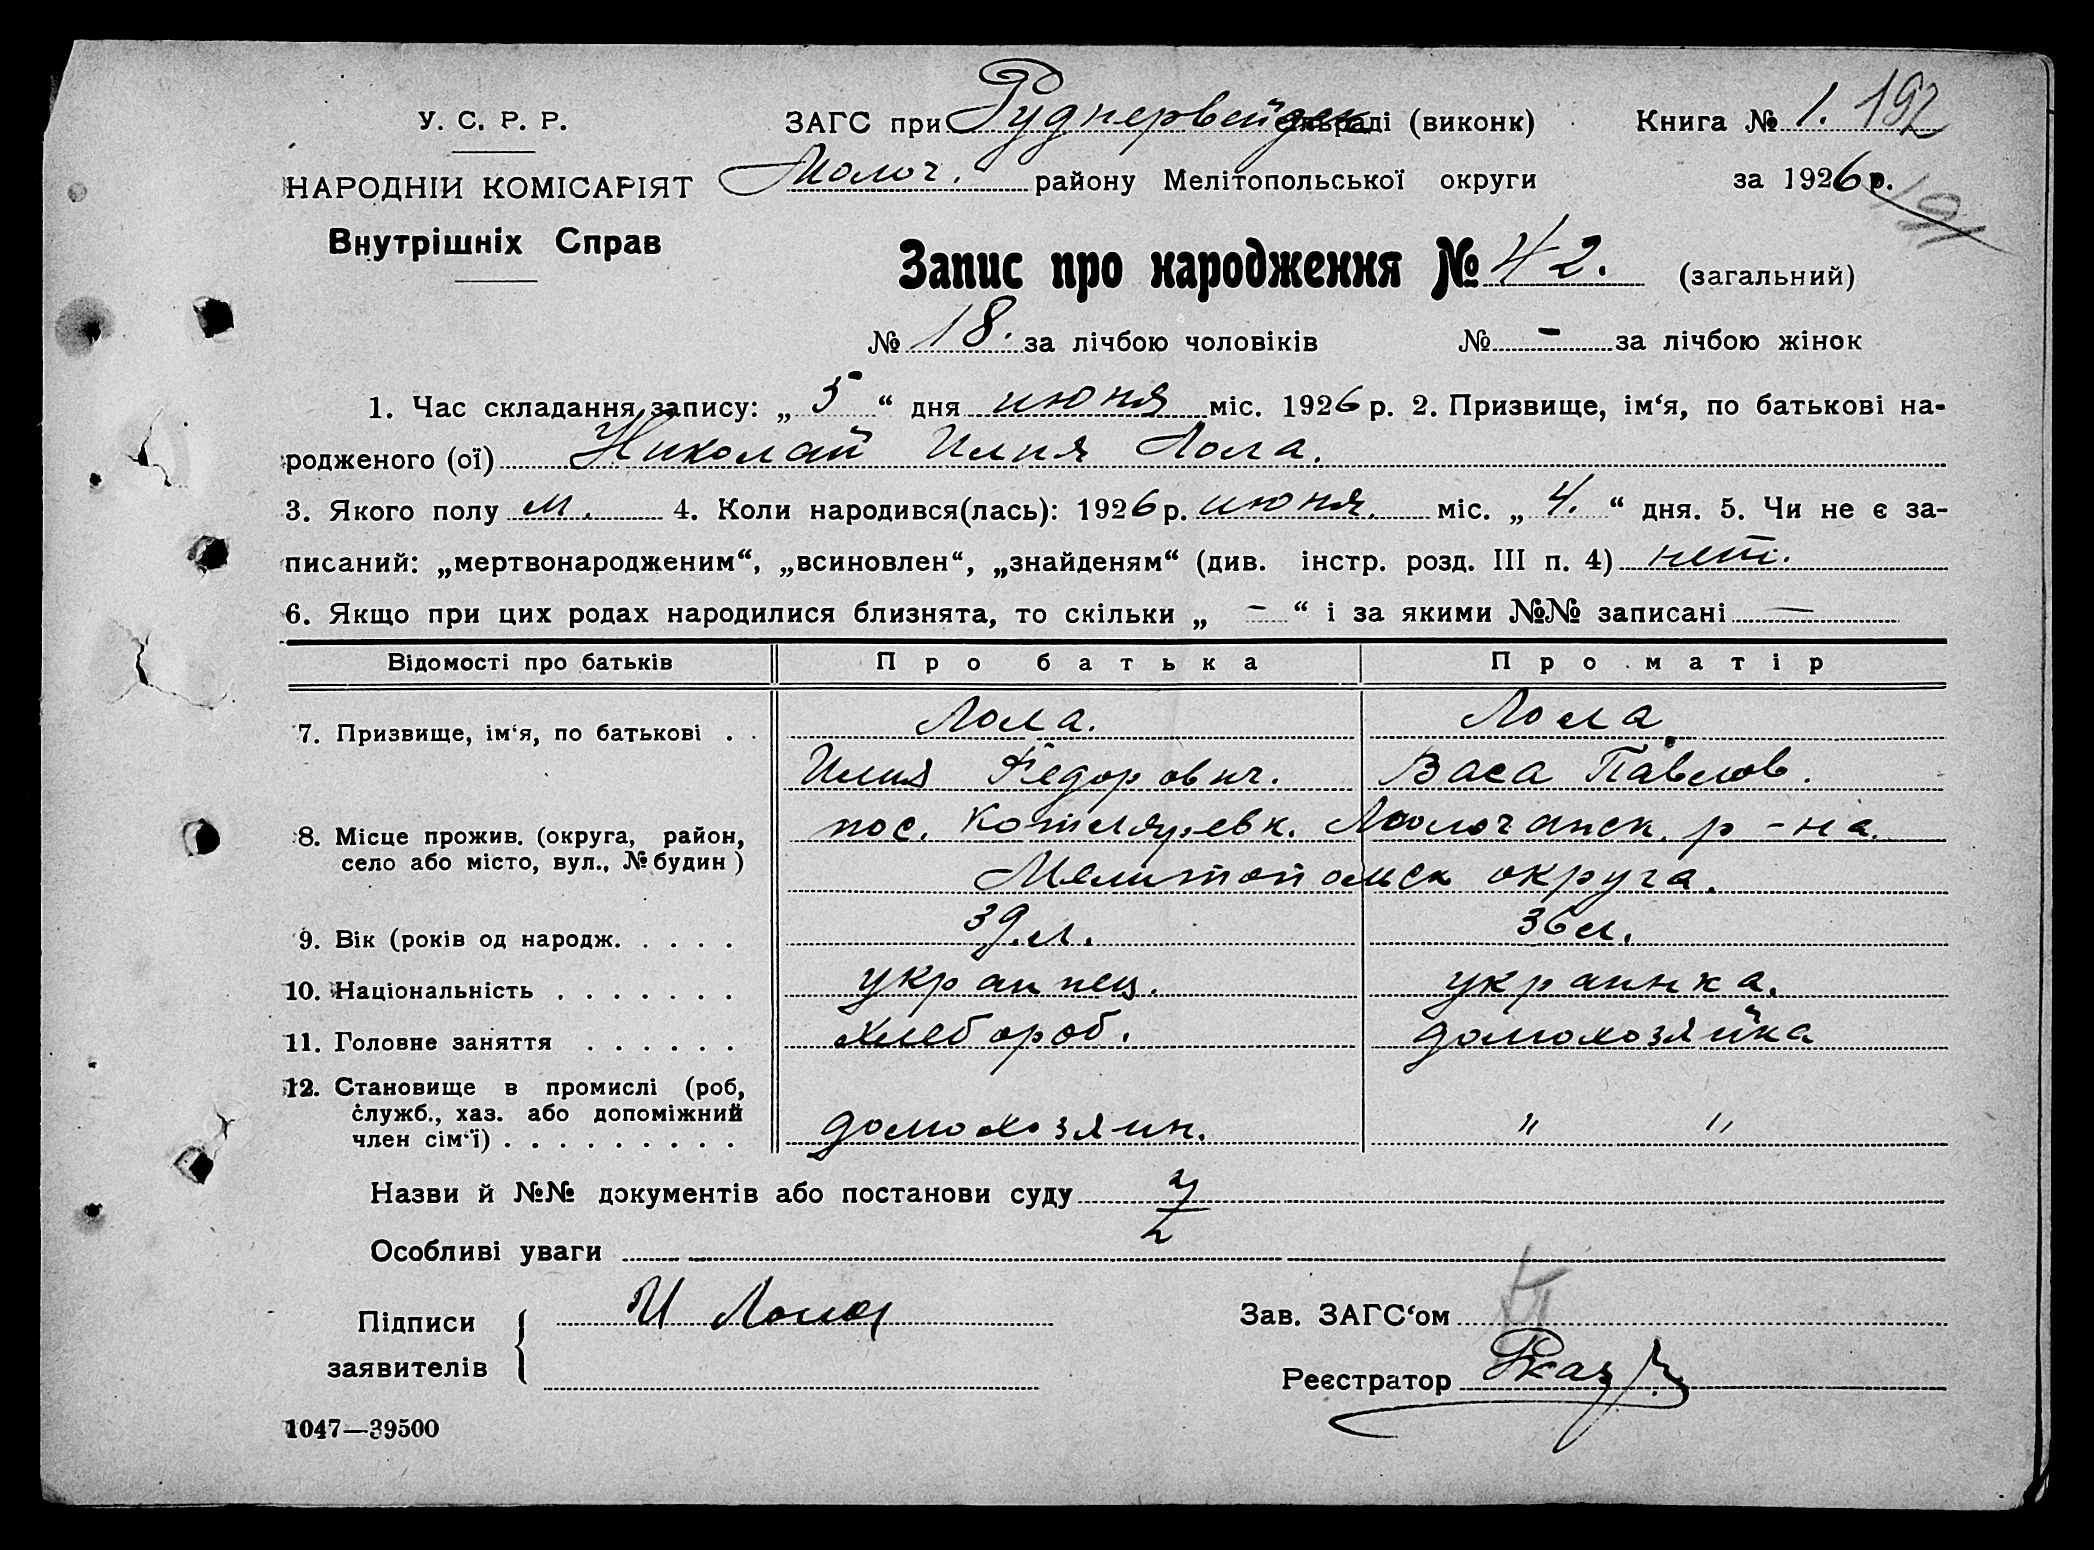 У. С. Р. Р.
НАРОДНІЙ КОМІСАРІЯТ
Внутрішніх Справ
ЗАГС при Руднервейдск сільраді (виконк) Книга № 1. 192
Молоч. району Мелітопольської округи за 1926 р. 191
Запис про народження № 42. (загальний)
№ 18. за лічбою чоловіків № - за лічбою жінок
1. Час складання запису: „ 5 “ дня июня міс. 1926 р. 2. Призвище, ім‘я, по батькові на-
родженого (ої) Николай Илия Лола.
3. Якого полу м. 4. Коли народився(лась): 1926 р. июня. міс. „ 4. “ дня. 5. Чи не є за-
писаний: „мертвонародженим“, „всиновлен“, „знайденям“ (див. інстр. розд. III п. 4) нет.
6. Якщо при цих родах народилися близнята, то скільки „ - “ і за якими №№ записані —
Відомості про батьків Про батька Про матір
7. Призвище, ім‘я, по батькові . . Лола. Лола
Илия Федорович. Васа Павлов.
8. Місце прожив. (округа, район, пос. Котляревк. Молочанск. р-на.
село або місто, вул., № будин) Мелитопольск округа.
9. Вік (років од народж. . . . . 39 л. 36 л.
10. Національність . . . . . . . украинец. украинка.
11. Головне заняття . . . . . . хлебороб. домохозяйка
12. Становище в промислі (роб,
служб., хаз. або допоміжний
член сім‘ї) . . . . . . . . . домохозяин. " "
Назви й №№ документів або постанови суду
Особливі уваги
Підписи И Лола Зав. ЗАГС‘ом
заявителів Реєстратор
1047—39500